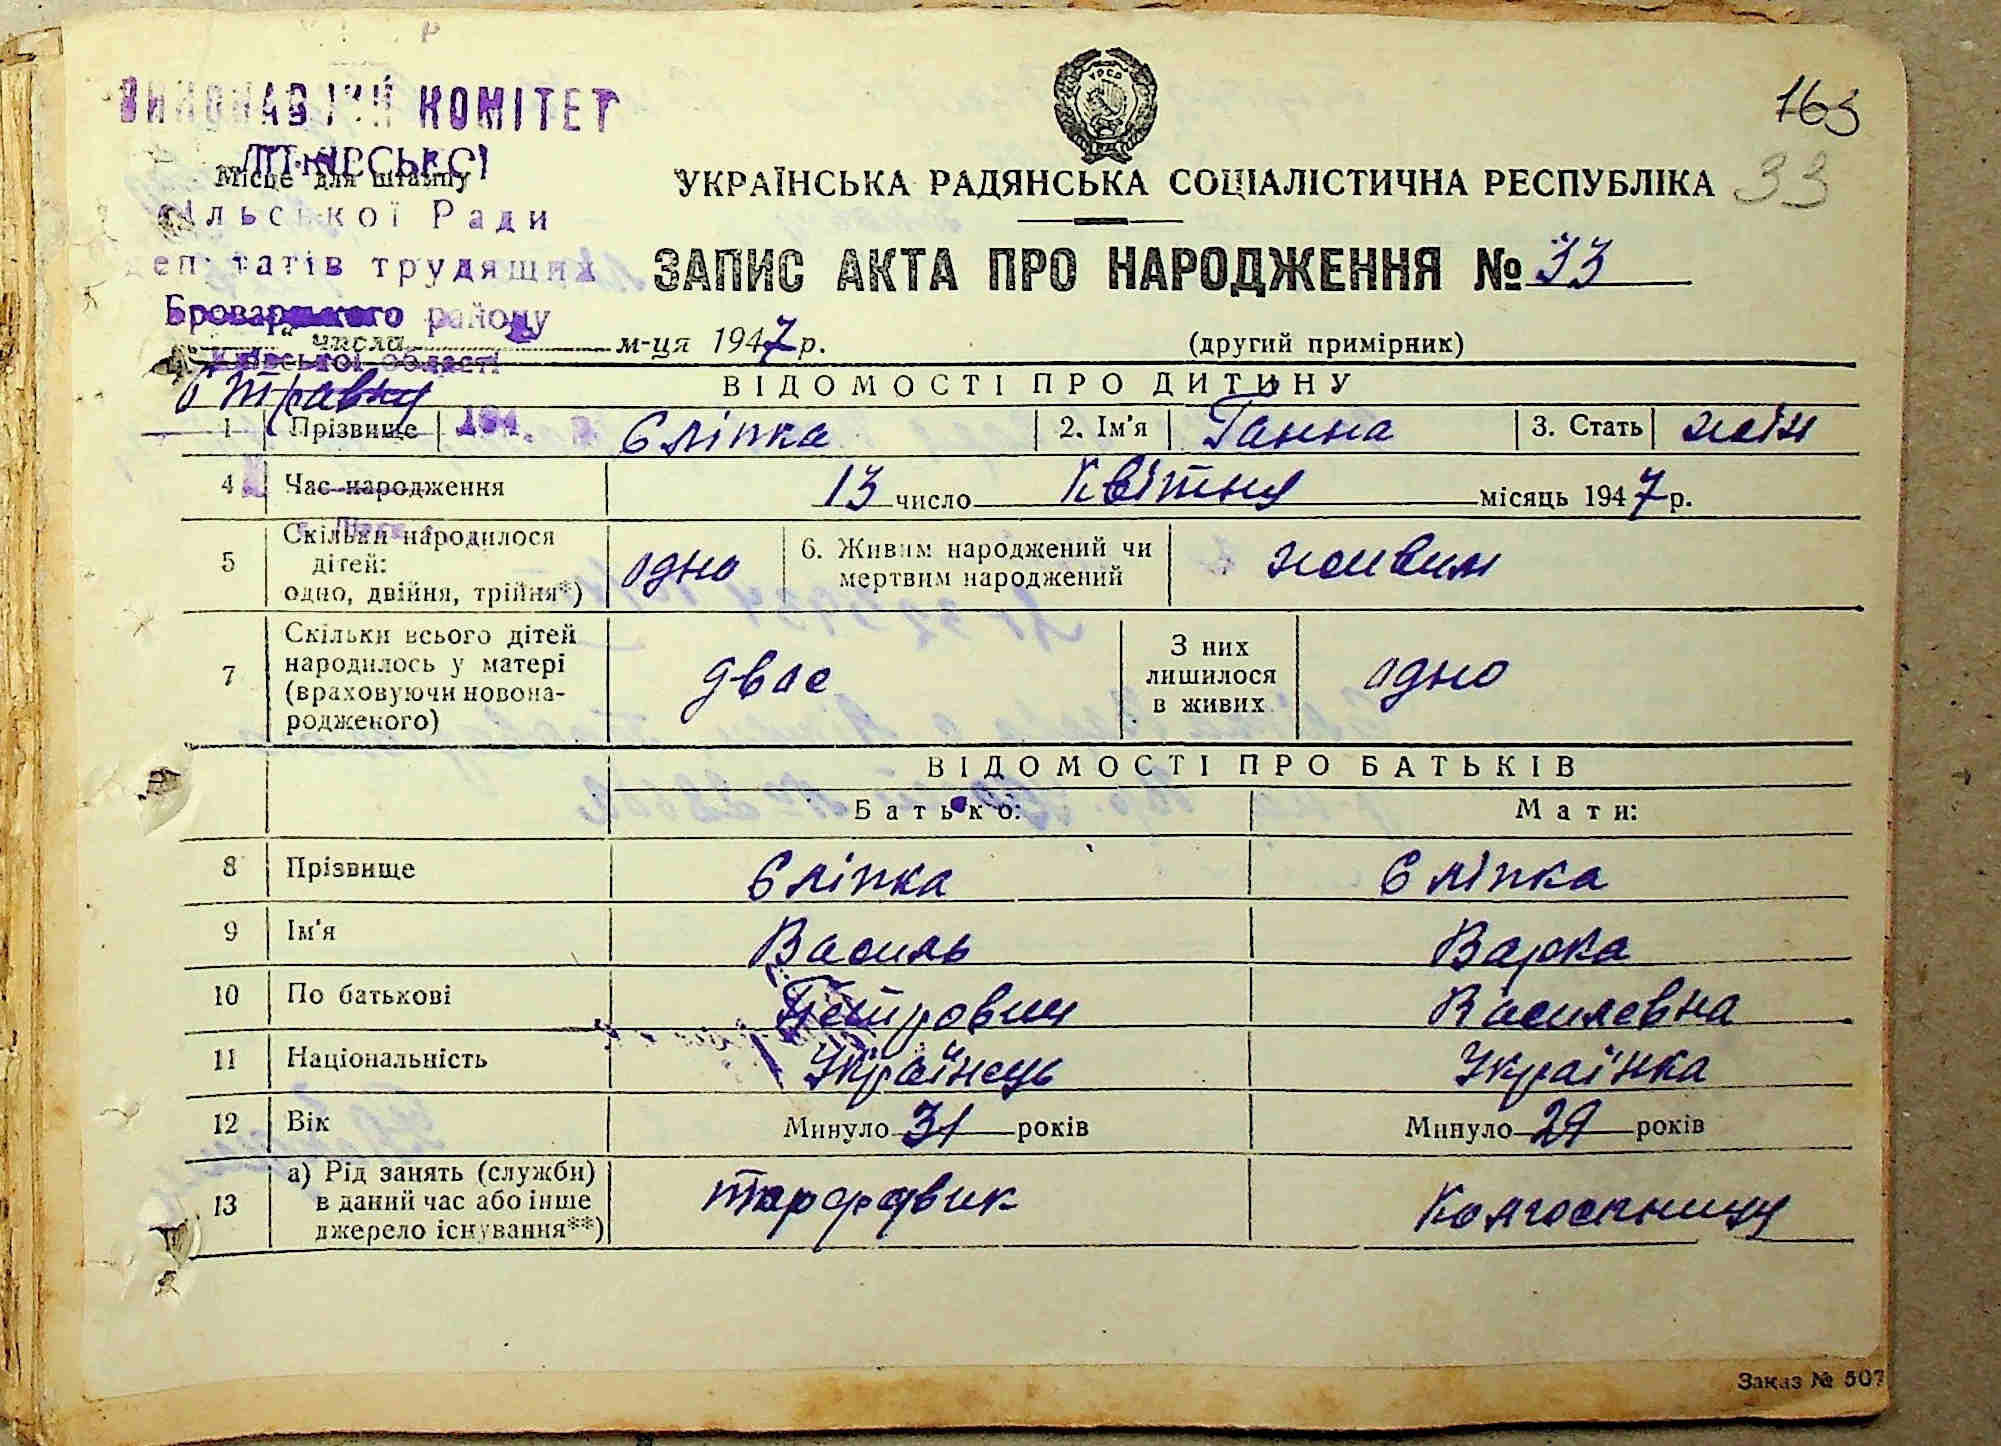 163
33
ВИКОНАВЧИЙ КОМІТЕТ
ЛІТКІВСЬКОЇ
Місце для штампу
сільської Ради
депутатів трудящих
Броварського району
Київської області
УРСР
УКРАЇНСЬКА РАДЯНСЬКА СОЦІАЛІСТИЧНА РЕСПУБЛІКА
ЗАПИС АКТА ПРО НАРОДЖЕННЯ № 33
числа м-ця 1947 р. (другий примірник)
6 травня
194
ВІДОМОСТІ ПРО ДИТИНУ
1 Прізвище Єліпка 2. Ім'я Ганна 3. Стать жін
4 Час народження 13 число Квітня місяць 1947 р.
5 Скільки народилося дітей: одно, двійня, трійня*) одно 6. Живим народжений чи мертвим народжений живим
7 Скільки всього дітей народилось у матері (враховуючи новонародженого) двоє З них лишилося в живих одно
ВІДОМОСТІ ПРО БАТЬКІВ
Батько: Мати:
8 Прізвище Єліпка Єліпка
9 Ім'я Василь Варка
10 По батькові Петрович Василевна
11 Національність Українець Українка
12 Вік Минуло 31 років Минуло 29 років
13 а) Рід занять (служби) в даний час або інше джерело існування**) торфовик Колгоспниця
Заказ № 507